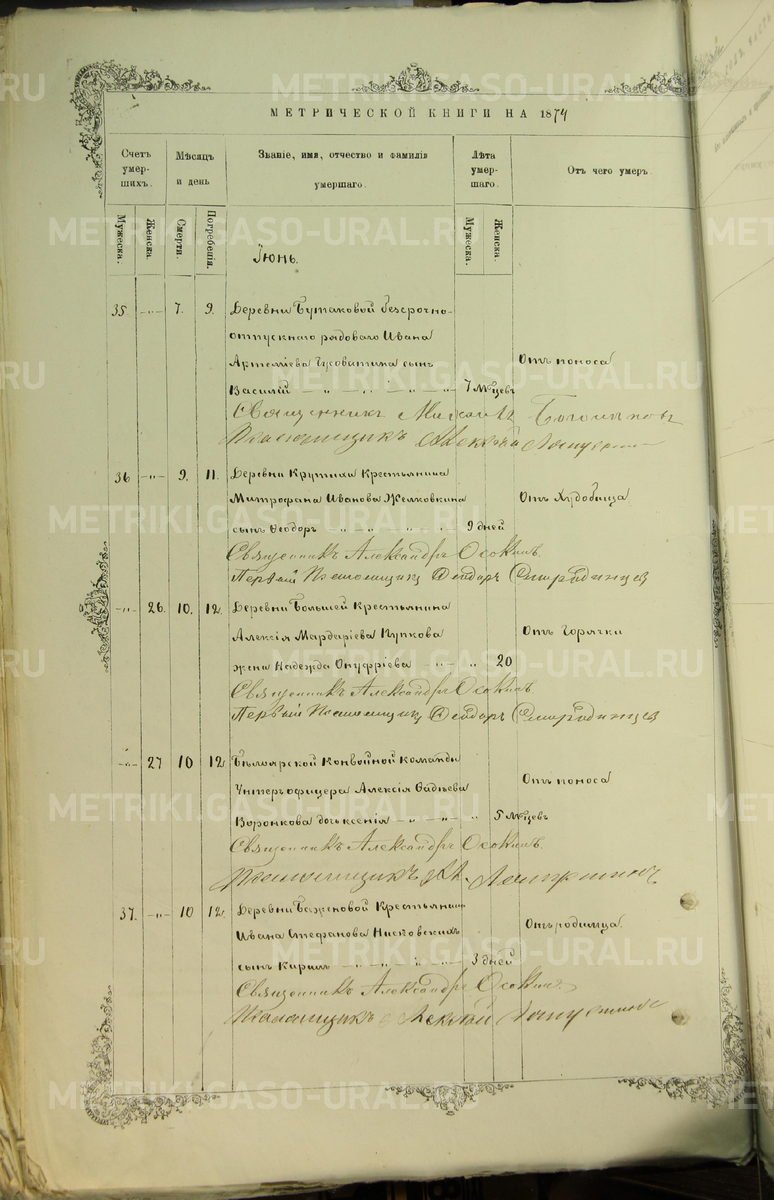 МЕТРИЧЕСКОЙ КНИГИ НА 1874
Счетъ умер- шихъ.
Мѣсяцъ и день
Званіе, имя, отчество и фамилія умершаго.
Лѣта умер- шаго.
Отъ чего умеръ.
Мужеска.
Женска.
Смерти.
Погребенія.
Мужеска.
Женска.
Іюнь.
35. -„- 7. 9. Деревни Бутаковой безсрочно-
отпускнаго рядоваго Ивана
Артеміева сынъ Отъ поноса
Василій -„-„-„- 7 мѣсцевъ
Священникъ
Псаломщикъ Алексѣй
36 -„- 9. 11. Деревни Крутихи Крестьянина
Митрофана Иванова Желковкина Отъ Худобища
сынъ Ѳеодоръ „ „ „ „ 9 дней
Священникъ Александръ Осокинъ.
Первый Псаломщикъ Ѳеодоръ Смородинцев
-„- 26. 10. 12. Деревни Большей Крестьянина
Алексія Мардаріева Купкова Отъ Горячки
жена Надежда Онуфріева -„-„ 20
Священникъ Александръ Осокинъ.
Первый Псаломщик Ѳеодоръ Смородинцев
-„- 27 10 12. Бѣлоярской Конвойной Команды
Унтеръофицера Алексія Отъ поноса
Воронкова дочь Ксенія -„-„-„ 5 мѣсцевъ
Священникъ Александръ Осокинъ.
Псаломщикъ
37. -„- 10 12. Деревни Баженовой Крестьянина
Ивана Стефанова Нисковскихъ Отъ родимца.
сынъ Кирилъ -„-„-„- 3 дней
Священникъ Александръ Осокинъ.
Псаломщикъ Алексѣй
METRIKI.GASO-URAL.RU